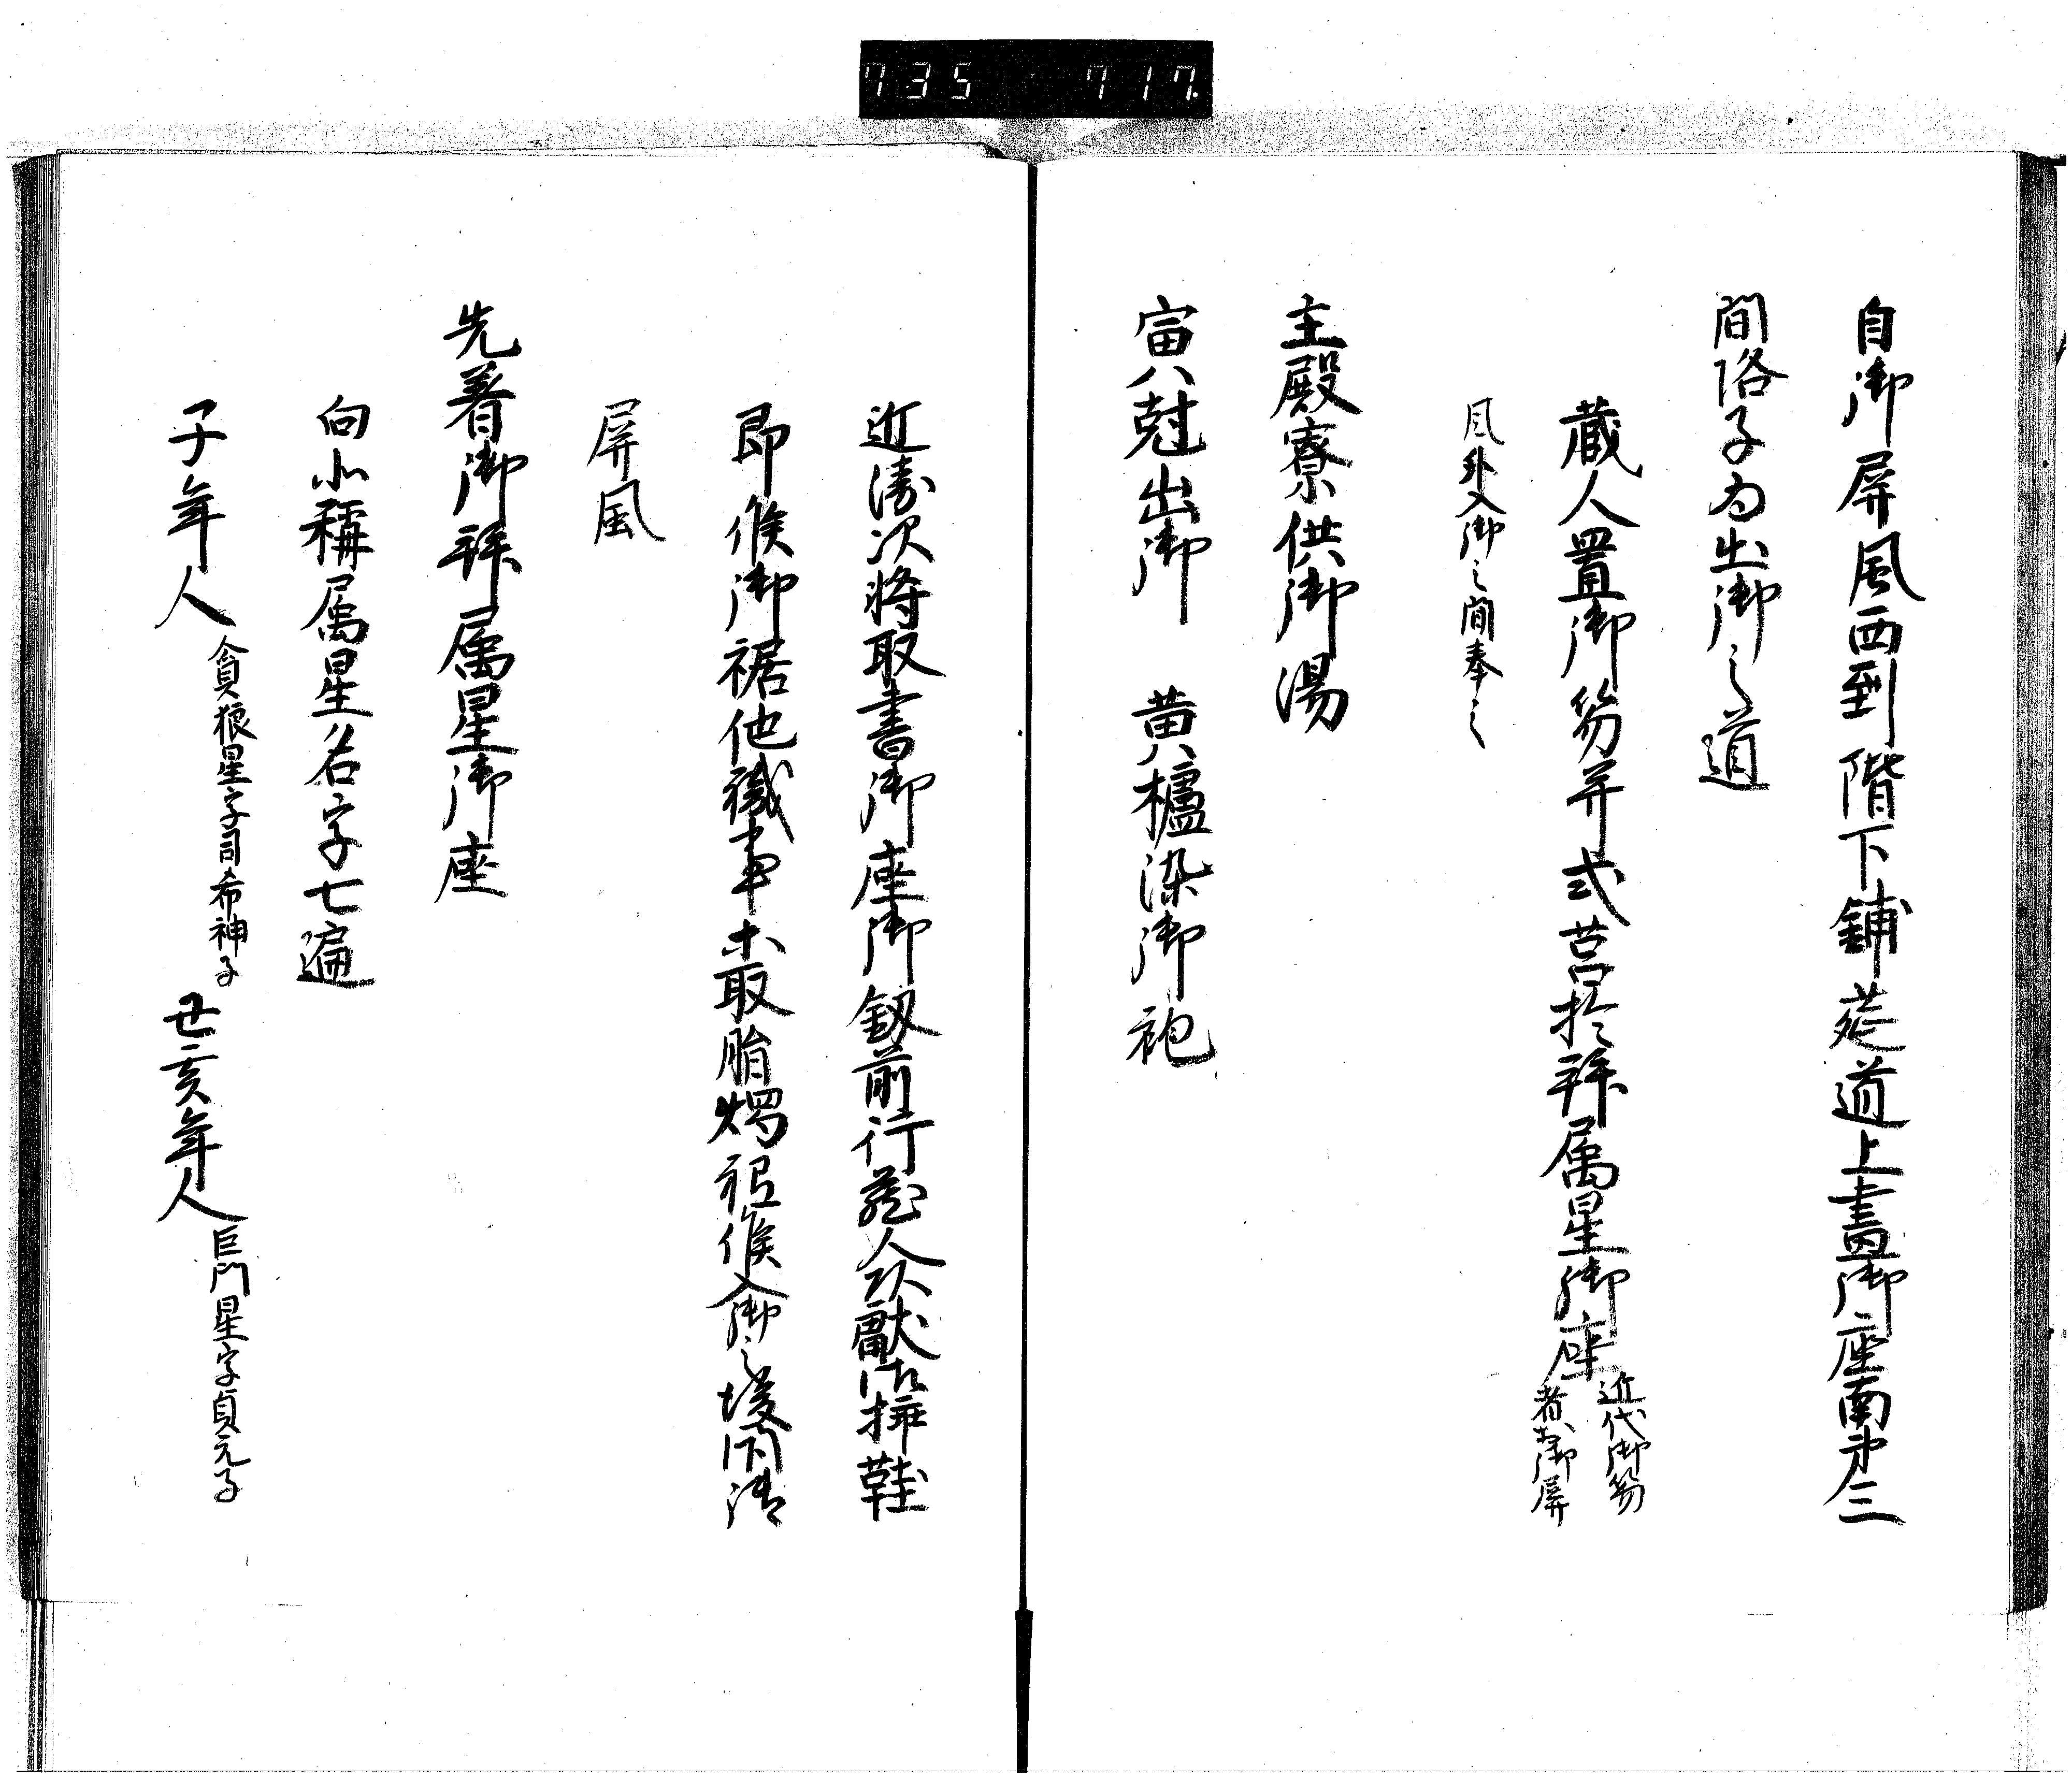 735 717
自御屏風西到階下鋪莚道上晝御座南第三
間格子為出御之道
蔵人置御笏并式筥於拝属星御座
近代御笏
者於御屏
風外入御之間奉之
主殿寮供御湯
寅八尅出御 黄櫨染御袍
近衛次将取書御座御釼前行蔵人頭献御挿鞋
即候御裾他職事等取脂燭祗候入御之後閇清
屏風
先着御拝属星御座
向北称属星名字七遍
子年人
貪狼星字司希神子
丑亥年人
巨門星字貞元子